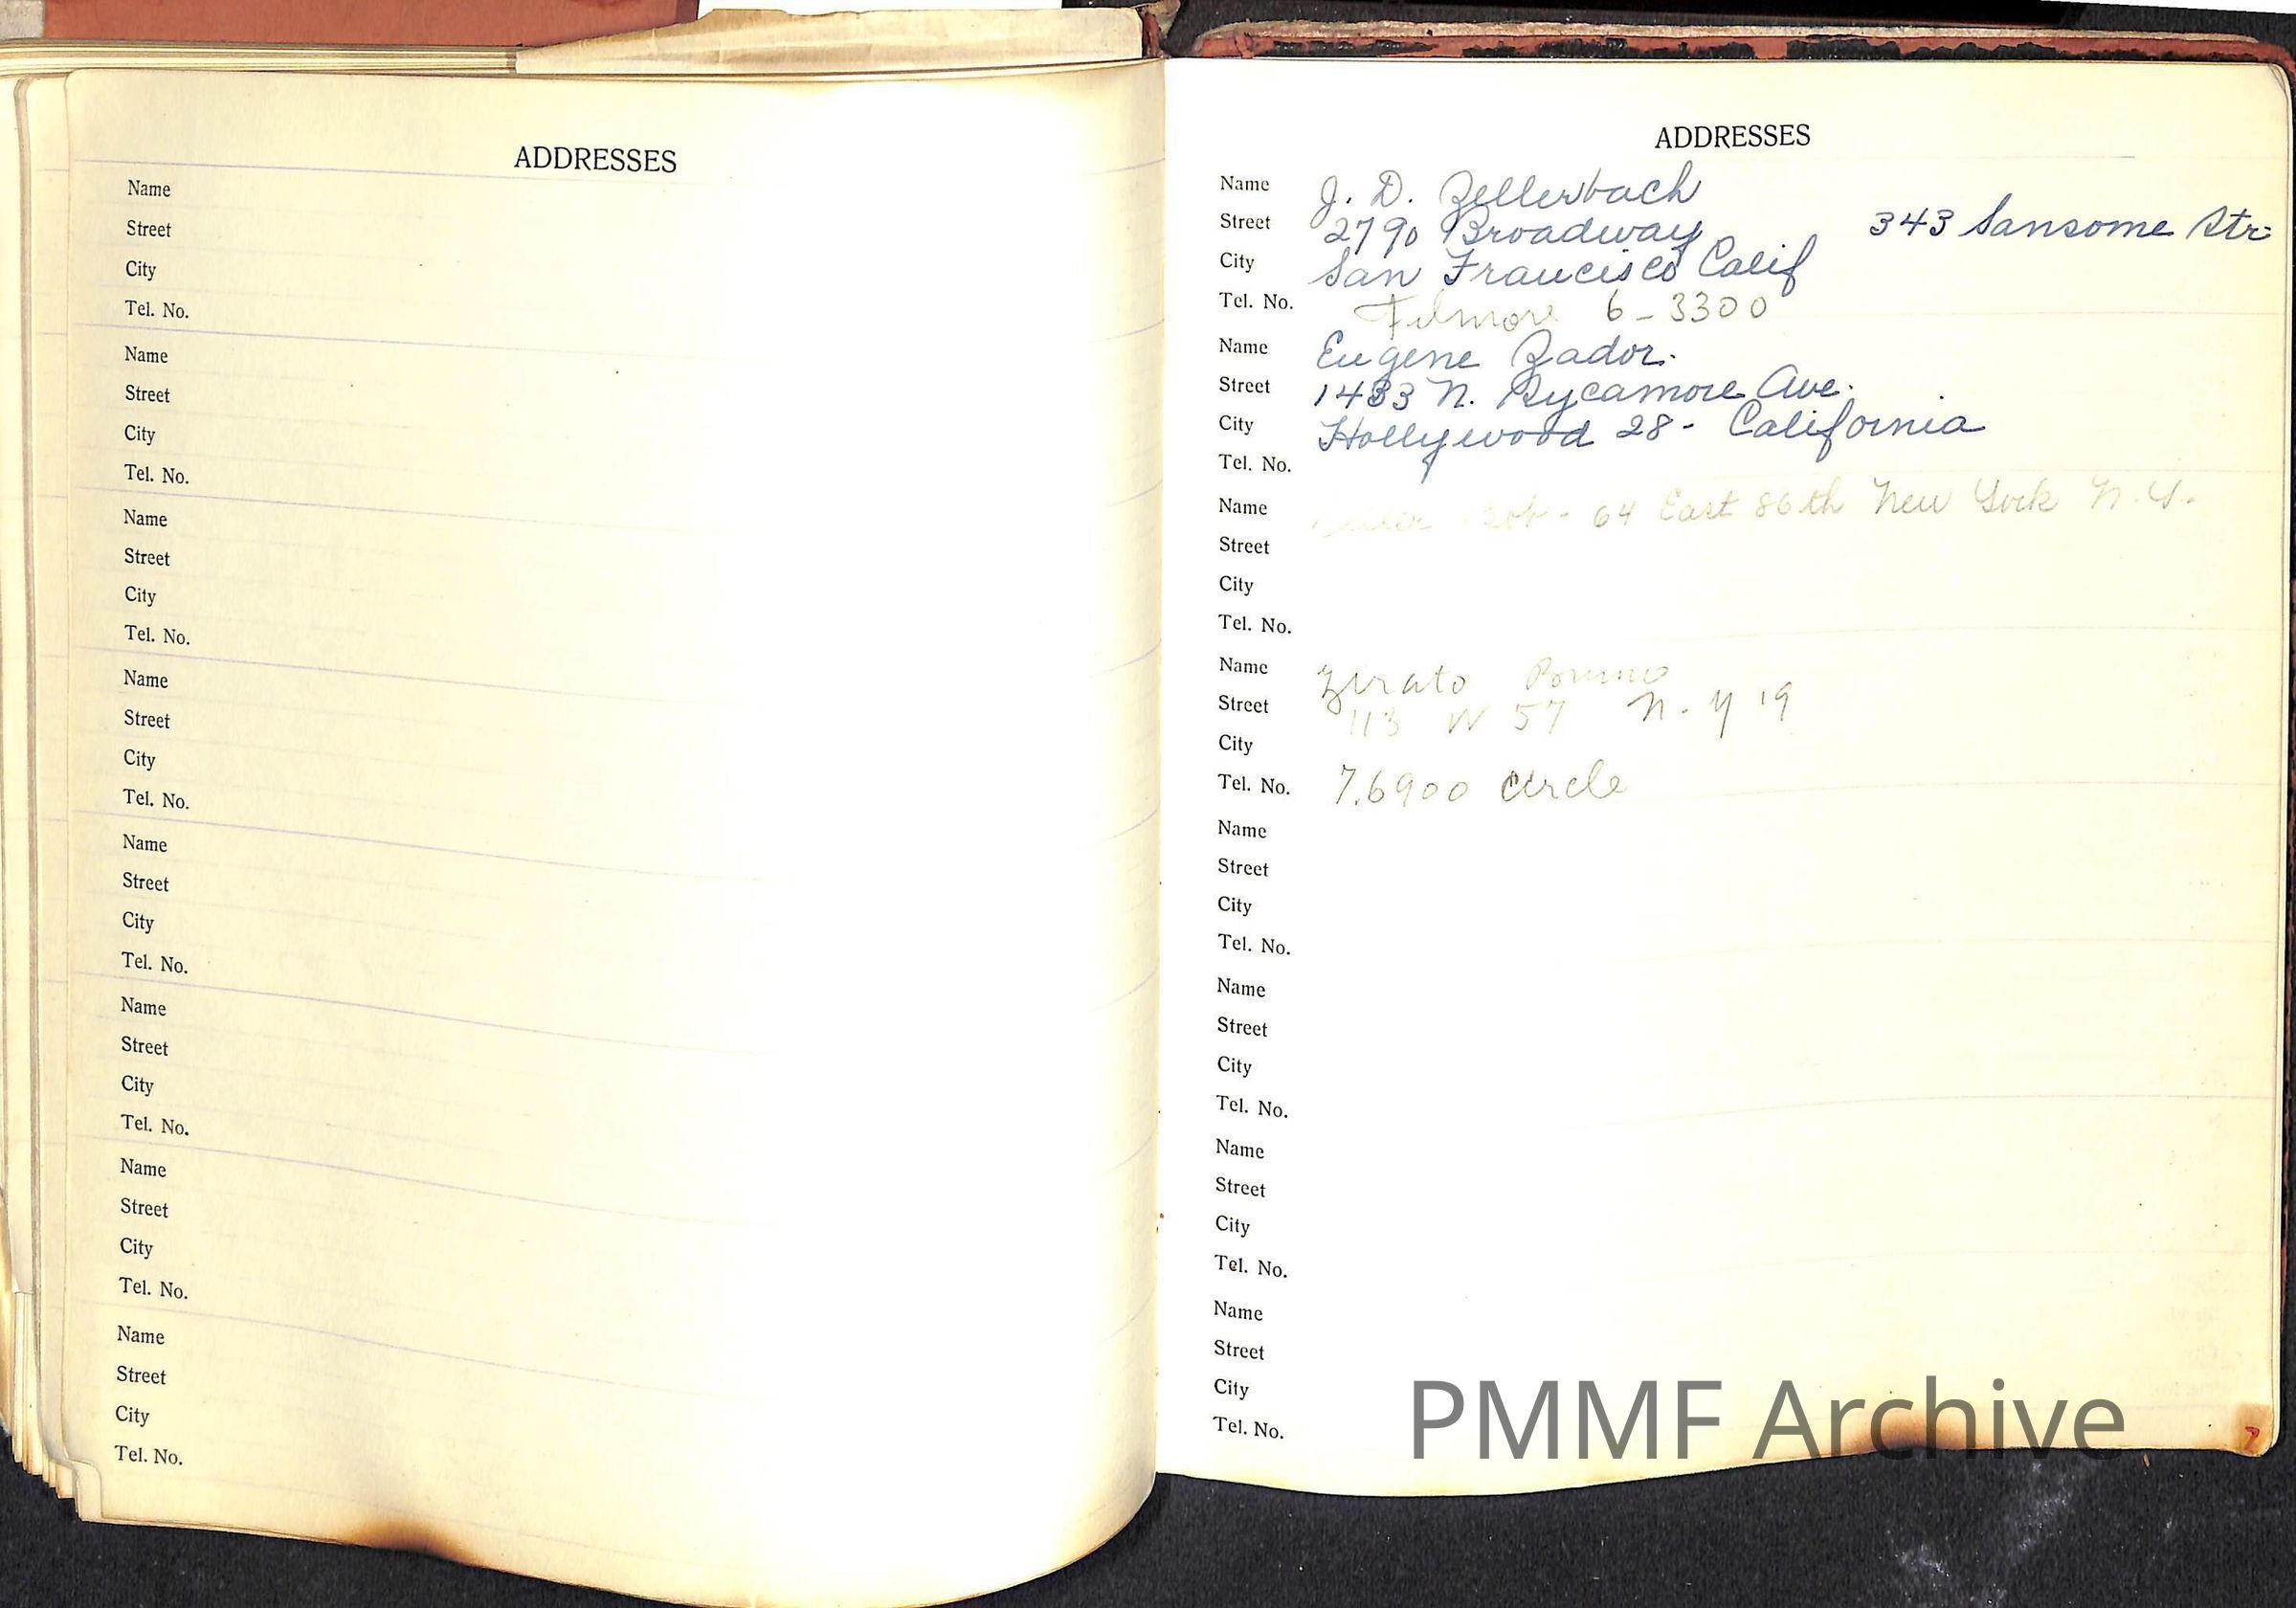 ADDRESSES
Name
Street
City
Tel. No.
Name
Street
City
Tel. No.
Name
Street
City
Tel. No.
Name
Street
City
Tel. No.
Name
Street
City
Tel. No.
Name
Street
City
Tel. No.
Name
Street
City
Tel. No.
Name
Street
City
Tel. No.
ADDRESSES
Name J. D. Zellerbach
Street 2790 Broadway 343 Sansome Str.
City San Francisco Calif
Tel. No. Filmore 6-3300
Name Eugene Zador.
Street 1433 N. Sycamore Ave.
City Hollywood 28 - California
Tel. No.
Name - 64 East 86th New York N.Y.
Street
City
Tel. No.
Name Zirato
Street 113 W 57 N.Y 19
City
Tel. No. 7.6900 Circle
Name
Street
City
Tel. No.
Name
Street
City
Tel. No.
Name
Street
City
Tel. No.
Name
Street
City
Tel. No.
PMMF Archive